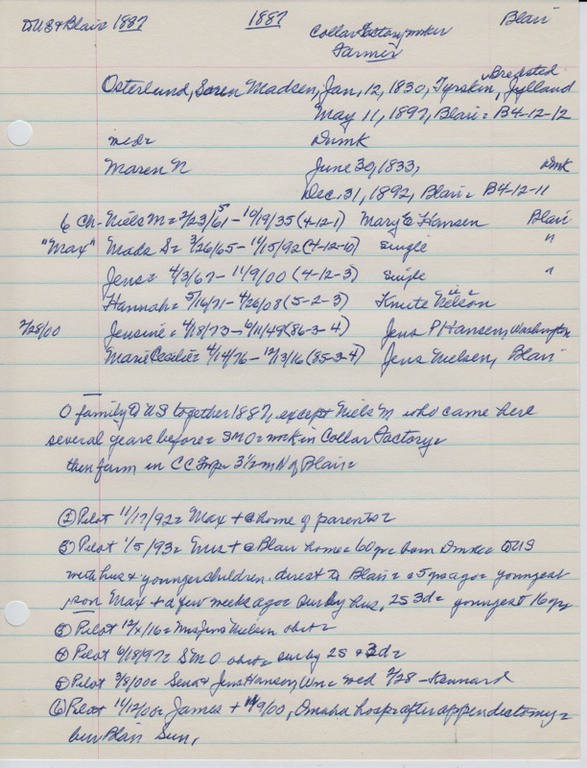 to US & Blair 1887 1887 Collar Factory worker Blair
Farmer
Osterlund, Soren Madsen, Jan, 12, 1830, Tyrskin, Bredsted Jylland
May 11, 1897, Blair = B4-12-12
med = Dnmk
Maren N June 30, 1833, Dmk
Dec. 31, 1892, Blair = B4-12-11
6 ch - Niels M = 2/23/61 - 10/19/35 (4-12-1) Mary E Hansen Blair
"Max" Mads S = 3/26/65 - 11/15/92 (4-12-10) single "
Jens = 4/3/67 - 11/9/00 (4-12-3) single "
Hannah = 5/16/71 - 4/26/08 (5-2-3) Knute Nielson
2/28/00 Jensine = 4/18/73 - 6/11/49 (86-3-4) Jens P Hansen, Washington
Marie Cecilie = 4/14/76 - 12/13/16 (85-3-4) Jens Nielsen, Blair
O family to US together 1887, except Niels M who came here
several years before = SMO = work in Collar Factory =
then farm in CC Twp = 3 1/2 m N of Blair =
② Pilot 11/17/92 = Max + @ home of parents =
③ Pilot 1/5/93 = Mrs + @ Blair home = 60 yr = born Dmk = to US
with hus & younger children. direct to Blair = 5 yrs ago = youngest
son Max + a few weeks ago = sur by hus, 2S 3d = youngest 16 yr
Pilot 12/ /16 = Mrs Jens Nielsen obit =
Pilot 6/18/97 = SMO obit = sur by 2S & 3d =
⑤ Pilot 3/8/00 = Sena & Jens Hansen, Wn = med 2/28 - Kennard
⑥ Pilot 11/12/00 = James + 11/9/00, Omaha hosp after appendectomy =
bur Blair Sun,